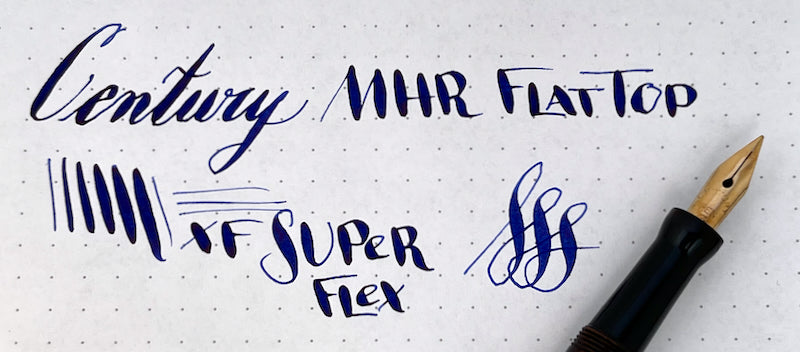 Century MHR FlatTop
XF SUPeR
Flex